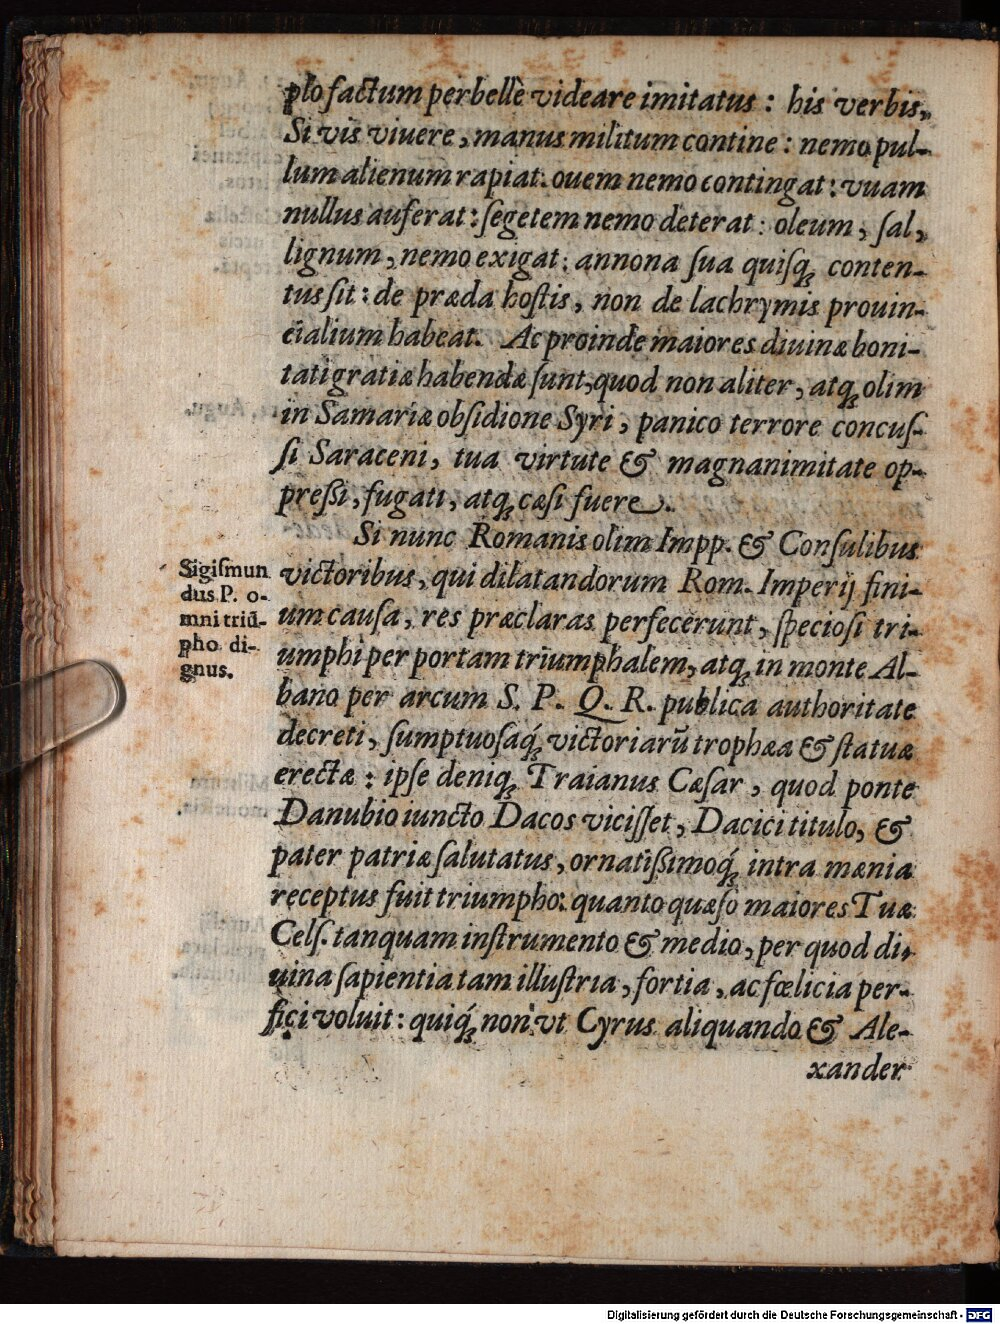 plo factum perbellè videare imitatus : his verbis,
Si vis viuere, manus militum contine : nemo pul-
lum alienum rapiat. ouem nemo contingat : vuam
nullus auferat : ſegetem nemo deterat : oleum, ſal,
lignum, nemo exigat : annona ſua quiſq́; conten-
tus ſit : de præda hoſtis, non de lachrymis prouin-
cialium habeat. Ac proinde maiores diuinæ boni-
tati gratiæ habendæ ſunt, quod non aliter, atq; olim
in Samariæ obſidione Syri, panico terrore concuſ-
ſi Saraceni, tua virtute & magnanimitate op-
preſſi, fugati, atq; cæſi fuere.
Si nunc Romanis olim Impp. & Conſulibus
victoribus, qui dilatandorum Rom. Imperij fini-
um cauſa, res præclaras perfecerunt, ſpecioſi tri-
umphi per portam triumphalem, atq; in monte Al-
bano per arcum S. P. Q. R. publica authoritate
decreti, ſumptuoſaq́; victoriarū trophæa & ſtatuæ
erectæ : ipſe deniq; Traianus Cæſar, quod ponte
Danubio iuncto Dacos viciſſet, Dacici titulo, &
pater patriæ ſalutatus, ornatiſſimoq́; intra mænia
receptus fuit triumpho: quanto quæſo maiores Tuæ
Celſ. tanquam inſtrumento & medio, per quod di-
uina ſapientia tam illuſtria, fortia, ac fœlicia per-
fici voluit : quiq́; non vt Cyrus aliquando & Ale-
xander
Sigiſmun
dus P. o-
mni triū-
pho di-
gnus.
Digitalisierung gefördert durch die Deutsche Forschungsgemeinschaft - DFG